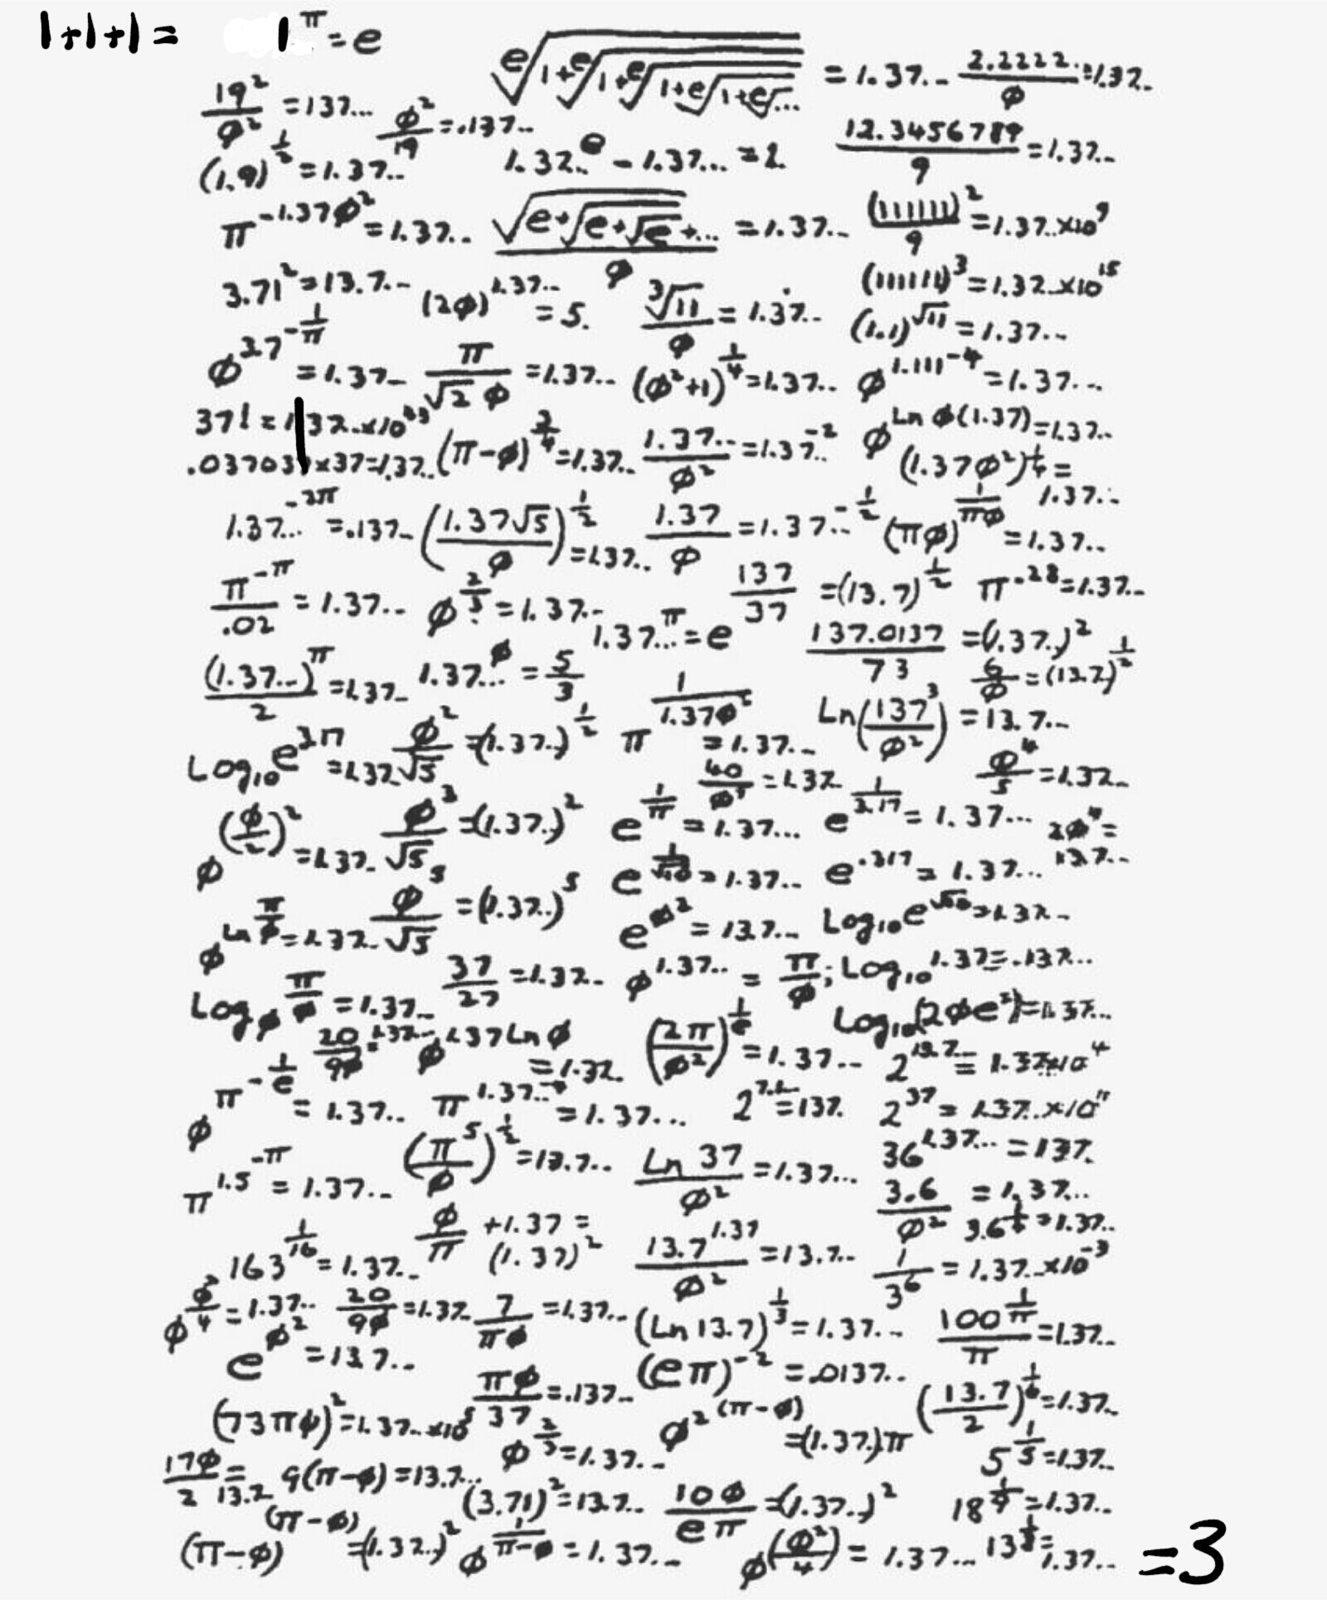 1+1+1 =
1^π = e
e√1+e√1+e√1+e√1+e√... = 1.37.. 2.2222../φ = 1.37..
19²/φ² = 137... φ²/19 = .137..
(1.9)^½ = 1.37.. 1.37..^e - 1.37... = 1. 12.3456789/9 = 1.37..
π^-1.37φ² = 1.37.. √e+√e+√e+.../φ = 1.37.. (111111)²/9 = 1.37..x10⁹
3.71² = 13.7.. (2φ)^1.37.. = 5. ³√11/φ = 1.37.. (111111)³ = 1.37..x10¹⁵
(1.1)^√11 = 1.37..
φ^37^-1/π = 1.37.. π/√2 φ = 1.37.. (φ²+1)^¼ = 1.37.. φ^1.111^-4 = 1.37...
37! = 1.37..x10⁴³ (π-φ)^¾ = 1.37.. 1.37../φ² = 1.37..^-2 φ^Ln φ(1.37) = 1.37..
.037037x37 = 1.37.. (1.37φ²)^¼ = 1.37..
1.37..^-2π = .137.. (1.37√5/φ)^½ = 1.37.. 1.37/φ = 1.37..^-½ (πφ)^1/πφ = 1.37..
π^-π/.02 = 1.37.. φ^⅔ = 1.37.. 137/37 = (13.7)^½ π^.28 = 1.37..
1.37..^π = e 137.0137/73 = (1.37..)²
(1.37..)^π/2 = 1.37.. 1.37..^φ = 5/3 π^1/1.37φ² = 1.37.. Ln(137³/φ²) = 13.7.. 6/φ = (13.7)^½
Log₁₀e^3.17 = 1.37 φ²/√5 = (1.37..)^½ 40/φ⁷ = 1.37.. φ⁴/5 = 1.37..
φ^(φ/2)² = 1.37.. φ³/√5 = (1.37..)² e^1/π = 1.37... e^1/3.17 = 1.37... 2φ⁴ = 13.7..
e^1/√10 = 1.37.. e^.317 = 1.37...
φ^Ln π/φ = 1.37.. φ⁵/√5 = (1.37..)⁵ e^φ² = 13.7... Log₁₀e^√10 = 1.37..
Log φ π/φ = 1.37.. 37/27 = 1.37.. φ^1.37.. = π/φ; Log₁₀1.37 = .137..
20/9φ = 1.37.. φ^1.37Lnφ = 1.37. (2π/φ²)^1/e = 1.37... Log₁₀(2φe²) = 1.37..
φ^π^-1/e = 1.37.. π^1.37..^-4 = 1.37... 2^7.1 = 137. 2^13.7.. = 1.37x10⁴
2³⁷ = 1.37..x10¹¹
π^1.5^-π = 1.37.. (π⁵/φ)^½ = 13.7.. Ln 37/φ² = 1.37... 36^1.37... = 137.
3.6/φ² = 1.37...
163^1/16 = 1.37.. φ/π +1.37 = (1.37)² 13.7^1.37/φ² = 13.7.. 1/3⁶ = 1.37..x10⁻³
20/9φ = 1.37.. 7/πφ = 1.37.. (Ln 13.7)^⅓ = 1.37... 100^1/π/π = 1.37..
e^φ² = 13.7.. πφ/37 = .137.. (eπ)⁻² = .0137.. (13.7/2)^1/6 = 1.37..
(73πφ)² = 1.37..x10⁵ φ^⅔ = 1.37.. φ^2(π-φ) = (1.37..)π 5^1/5 = 1.37..
17φ/2 = 13.7.. 9(π-φ) = 13.7... (3.71)² = 13.7.. 10φ/eπ = (1.37..)² 18^1/9 = 1.37..
(π-φ)^(π-φ) = (1.37..)² φ^1/π-φ = 1.37.. φ^(φ²/4) = 1.37... 13^1/8 = 1.37...
=3